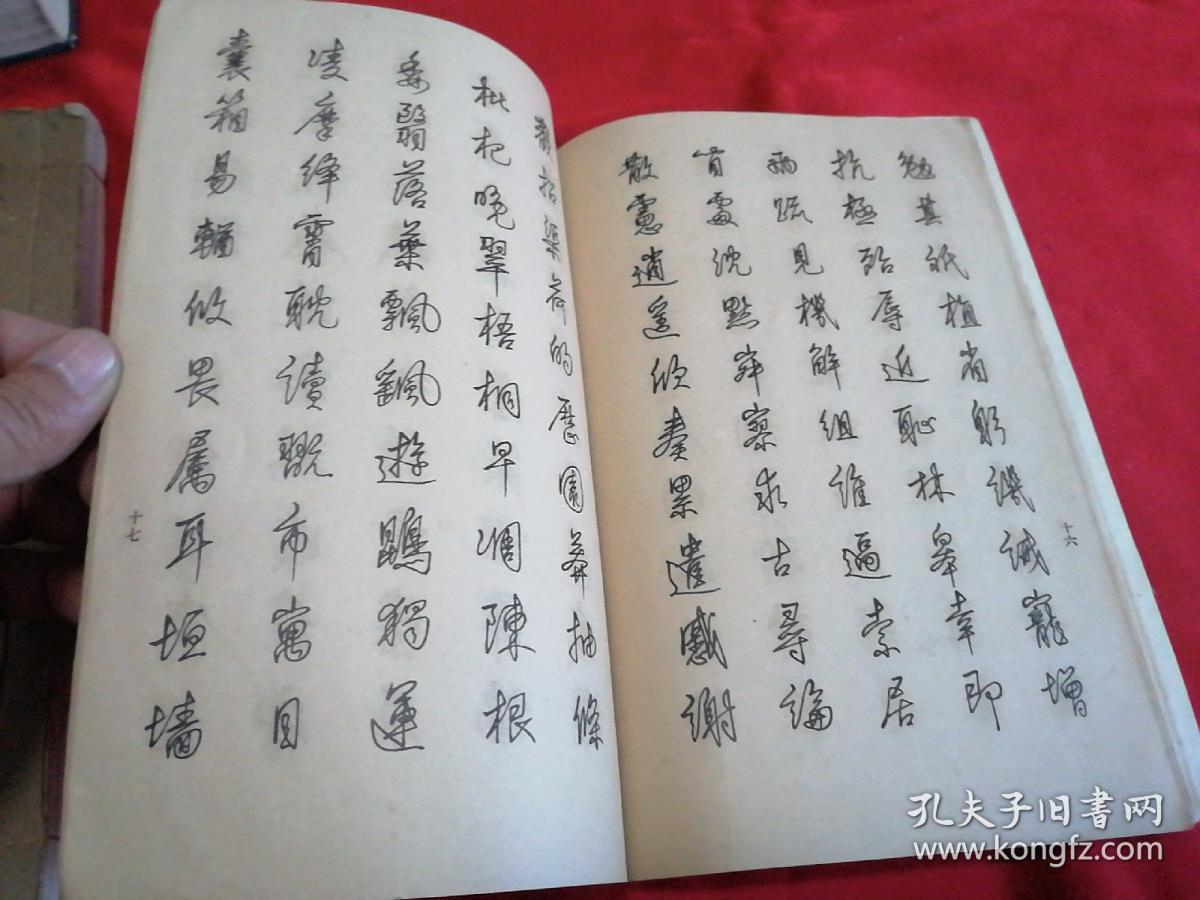 勉其祗植省躬譏誡寵增
抗極殆辱近恥林皋幸即
兩疏見機解組誰逼索居
閒處沈默寂寥求古尋論
散慮逍遙欣奏累遣慼謝
十六
歡招渠荷的歷園莽抽條
枇杷晚翠梧桐早凋陳根
委翳落葉飄颻遊鵾獨運
凌摩絳霄耽讀翫市寓目
囊箱易輶攸畏屬耳垣墻
十七
孔夫子旧書网
www.kongfz.com